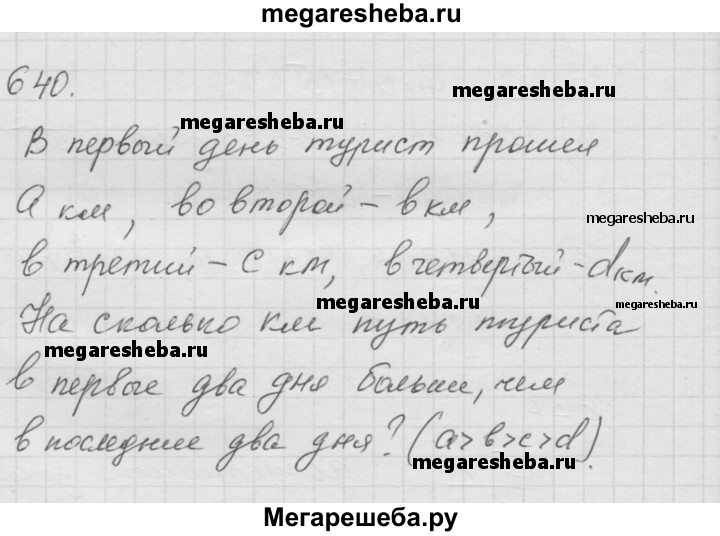 megaresheba.ru
640.
megaresheba.ru
megaresheba.ru
В первый день турист прошел
а км, во второй – в км,
megaresheba.ru
в третий – с км, в четвертый – d км.
megaresheba.ru
megaresheba.ru
На сколько км путь туриста
megaresheba.ru
в первые два дня больше, чем
в последние два дня? (a>b>c>d).
megaresheba.ru
Мегарешеба.ру